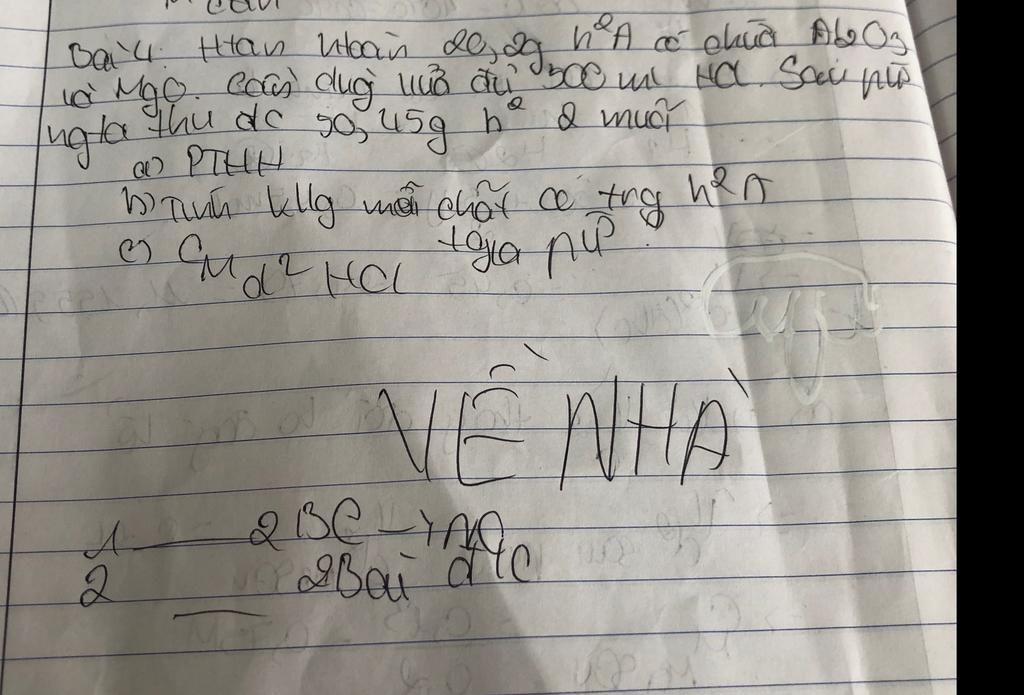 Bài 4: Htan htoàn 20,2g h²A có chứa Al2O3
và MgO. Cần dung vừa đủ 500 ml HCl. Sau pứ
ngta thu đc 50,45g h² 2 muối
a) PTHH
b) Tính klg mỗi chất có trng h²A
tgia pứ.
c) CM d² HCl
VỀ NHÀ
1 — 2 BC
2 — 2 Bài